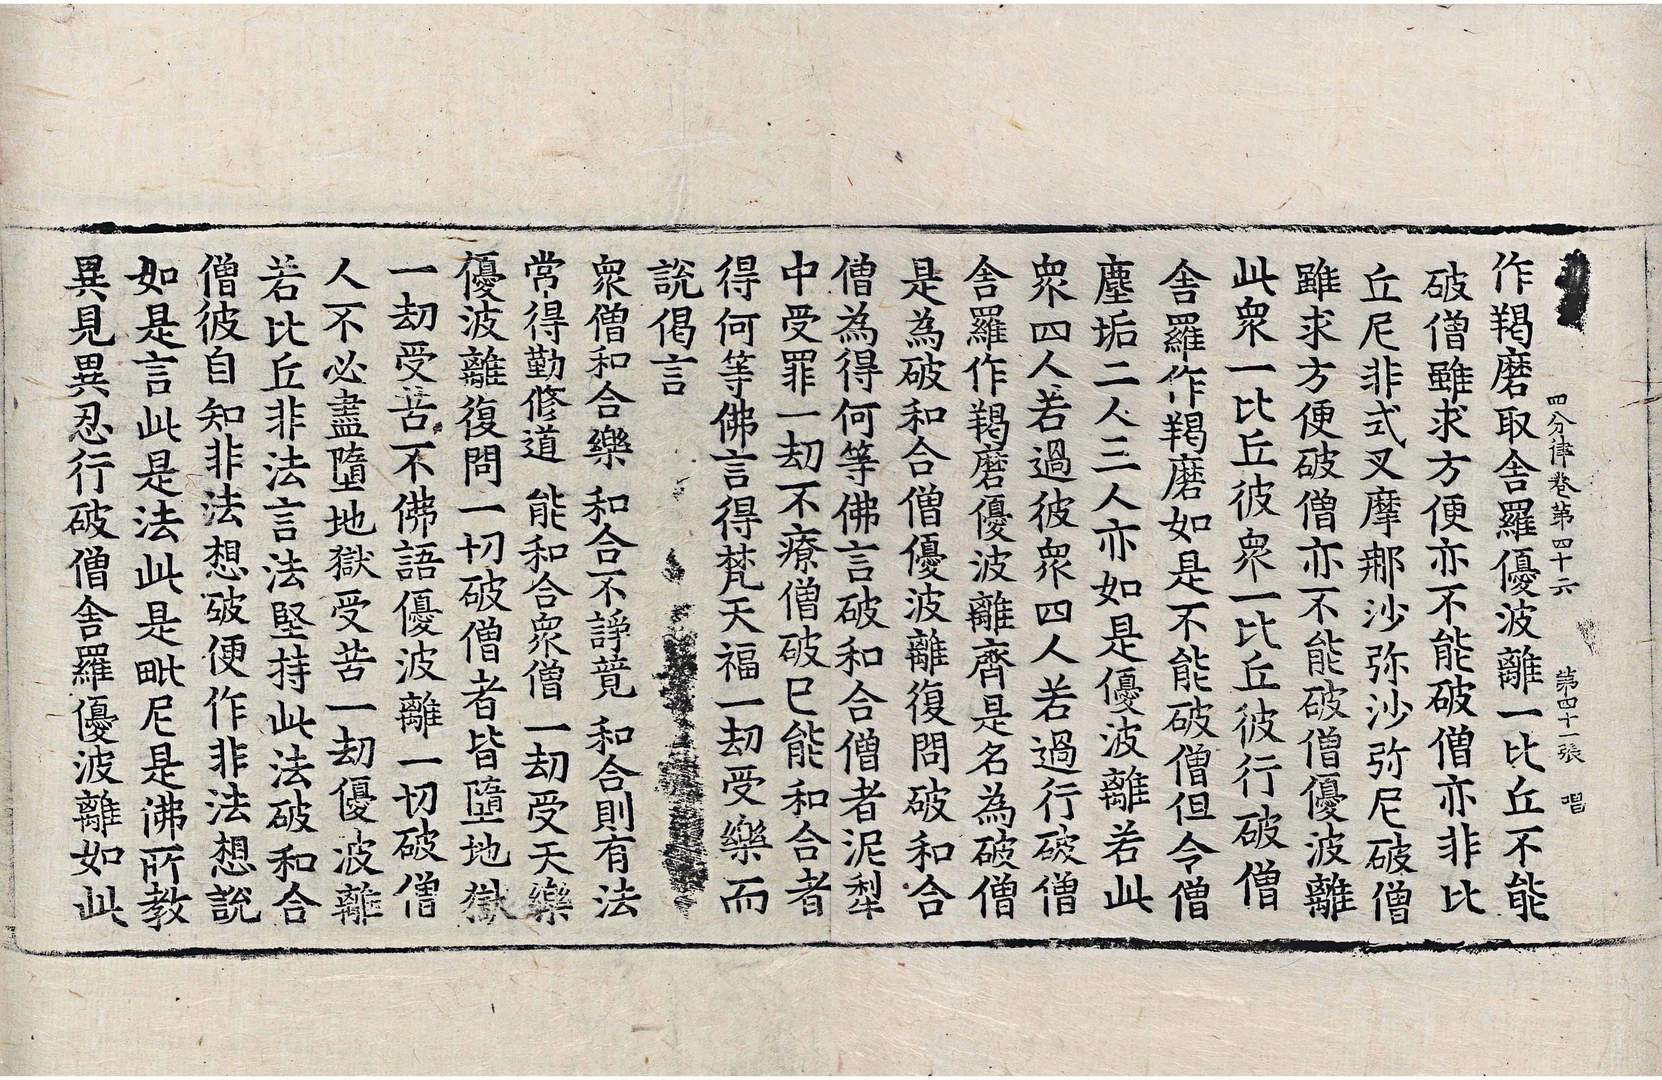 四分律卷第四十六 第四十一張 唱
作羯磨取舍羅優波離一比丘不能
破僧雖求方便亦不能破僧亦非比
丘尼非式叉摩那沙弥沙弥尼破僧
雖求方便破僧亦不能破僧優波離
此衆一比丘彼衆一比丘彼行破僧
舍羅作羯磨如是不能破僧但令僧
塵垢二人三人亦如是優波離若此
衆四人若過彼衆四人若過行破僧
舍羅作羯磨優波離齊是名為破僧
是為破和合僧優波離復問破和合
僧為得何等佛言破和合僧者泥犁
中受罪一劫不療僧破已能和合者
得何等佛言得梵天福一劫受樂而
說偈言
衆僧和合樂 和合不諍競 和合則有法
常得勤修道 能和合衆僧 一劫受天樂
優波離復問一切破僧者皆墮地獄
一劫受苦不佛語優波離一切破僧
人不必盡墮地獄受苦一劫優波離
若比丘非法言法堅持此法破和合
僧彼自知非法想破便作非法想說
如是言此是法此是毗尼是佛所教
異見異忍行破僧舍羅優波離如此